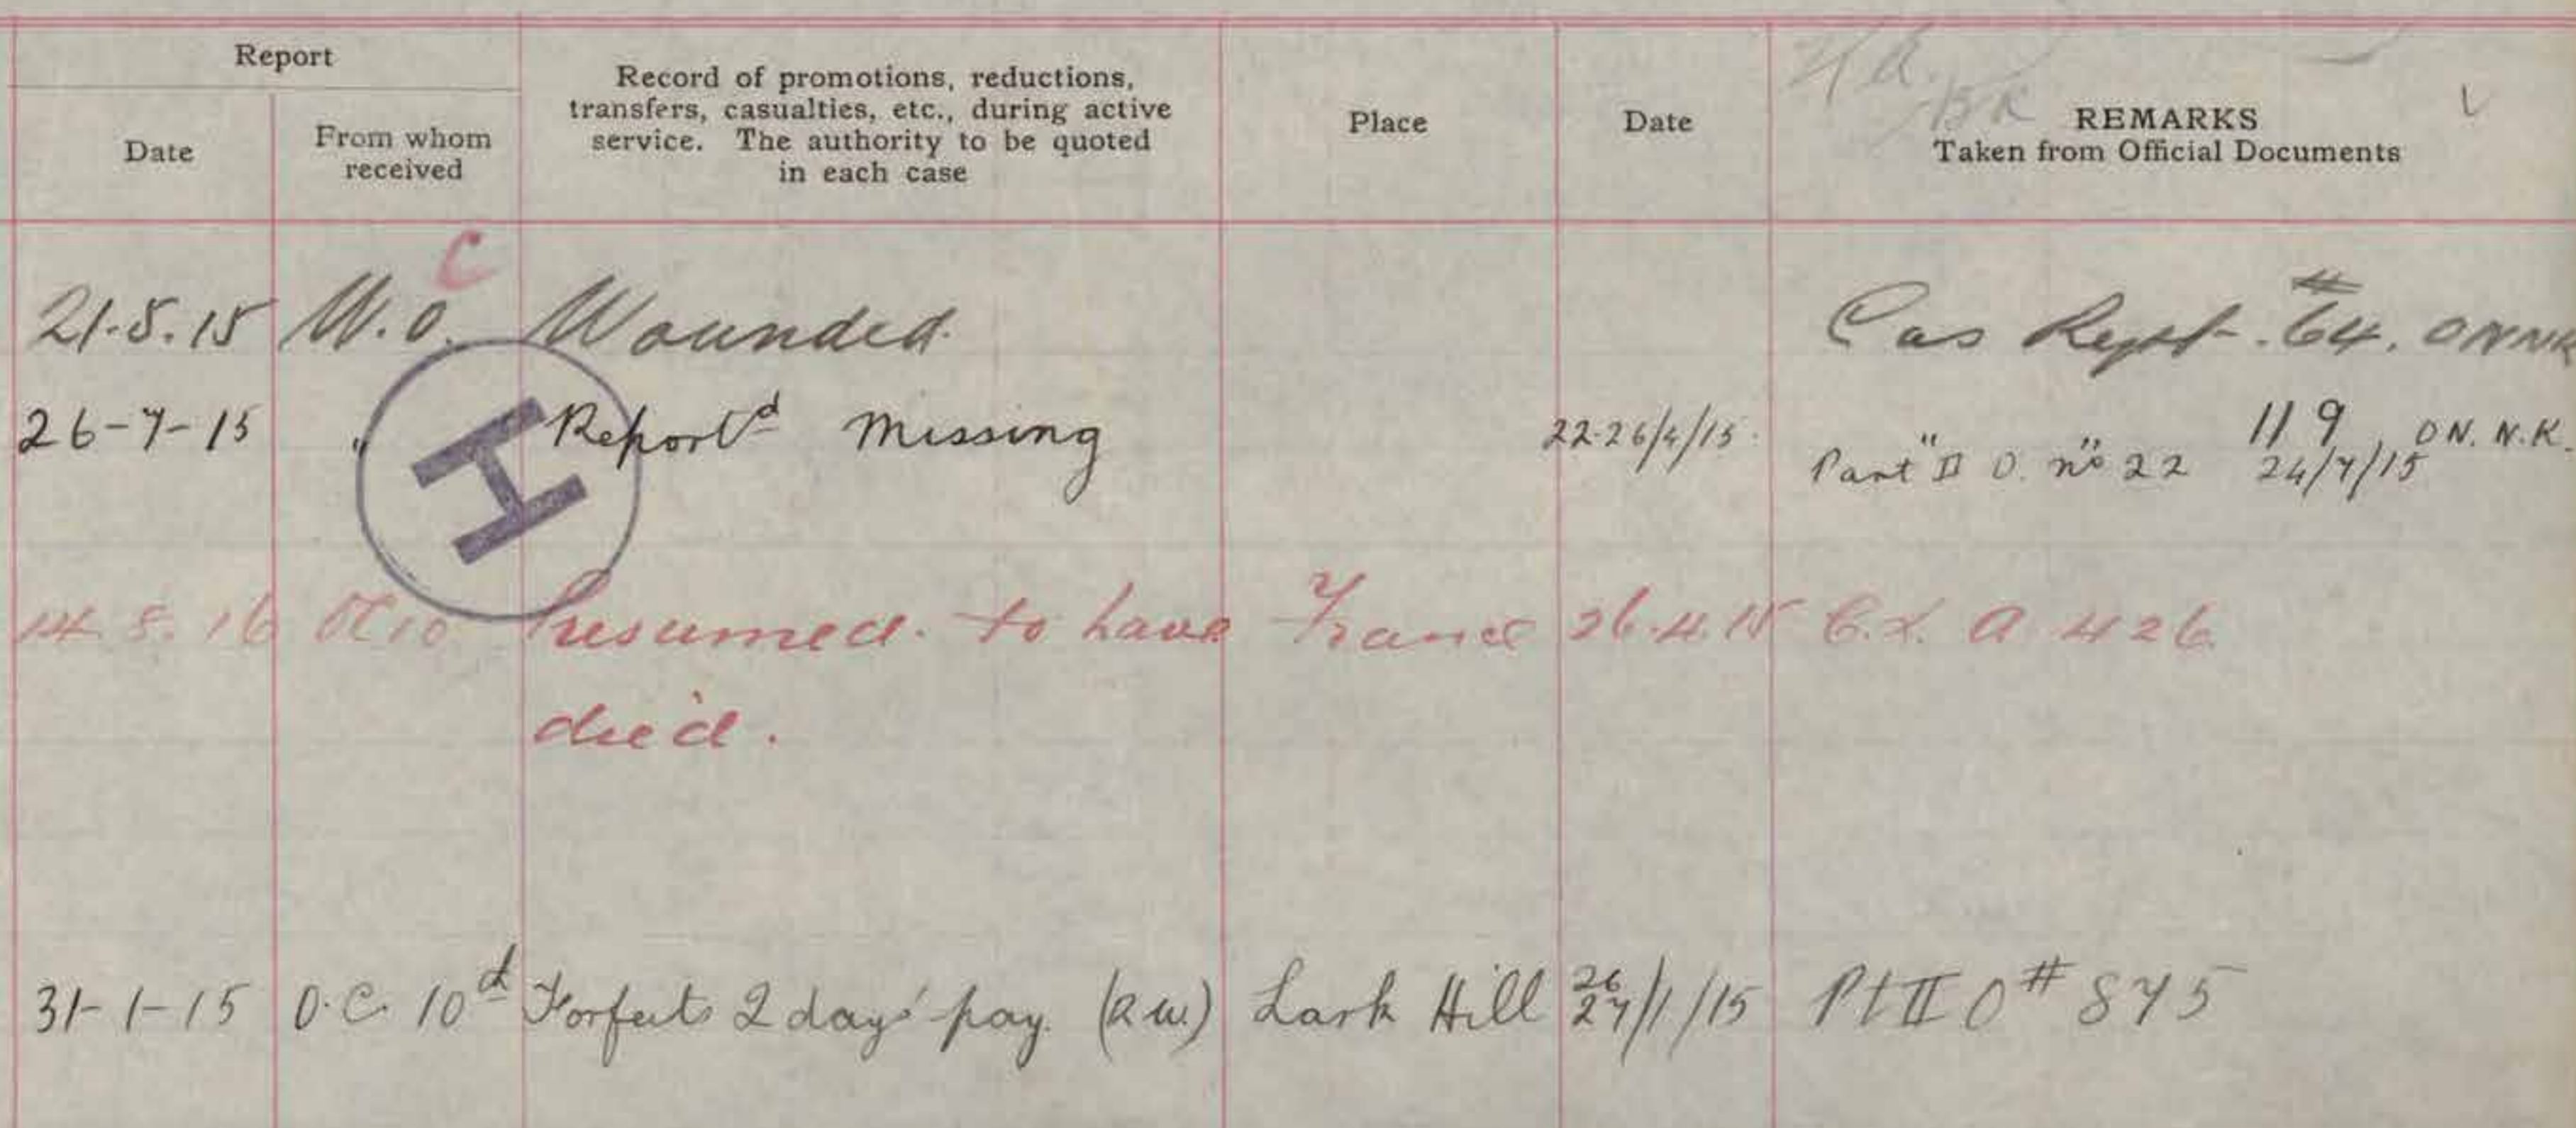 Report
Date
From whom
received
Record of promotions, reductions,
transfers, casualties, etc., during active
service. The authority to be quoted
in each case
Place
Date
REMARKS
Taken from Official Documents
C
21.5.15 W.O. Wounded. Cas Rept. #64. ONNK
26-7-15 " Report^d Missing 22-26/4/15 " " 119 ON. N.K.
Part II O. No 22 24/7/15
H
14.8.16 Presumed to have France 26.4.15 A 426
died.
31-1-15 O.C. 10^d Forfeits 2 days' pay. (R.W.) Lark Hill 26
27/1/15 Pt II O # 875